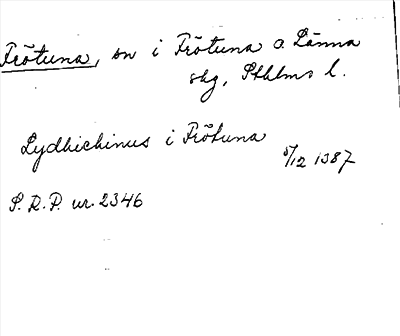 Frötuna, sn i Frötuna o. Länna
skg, Sthlms l.
Lydhichinus i Frötuna
5/12 1387
S.R.P. nr. 2346